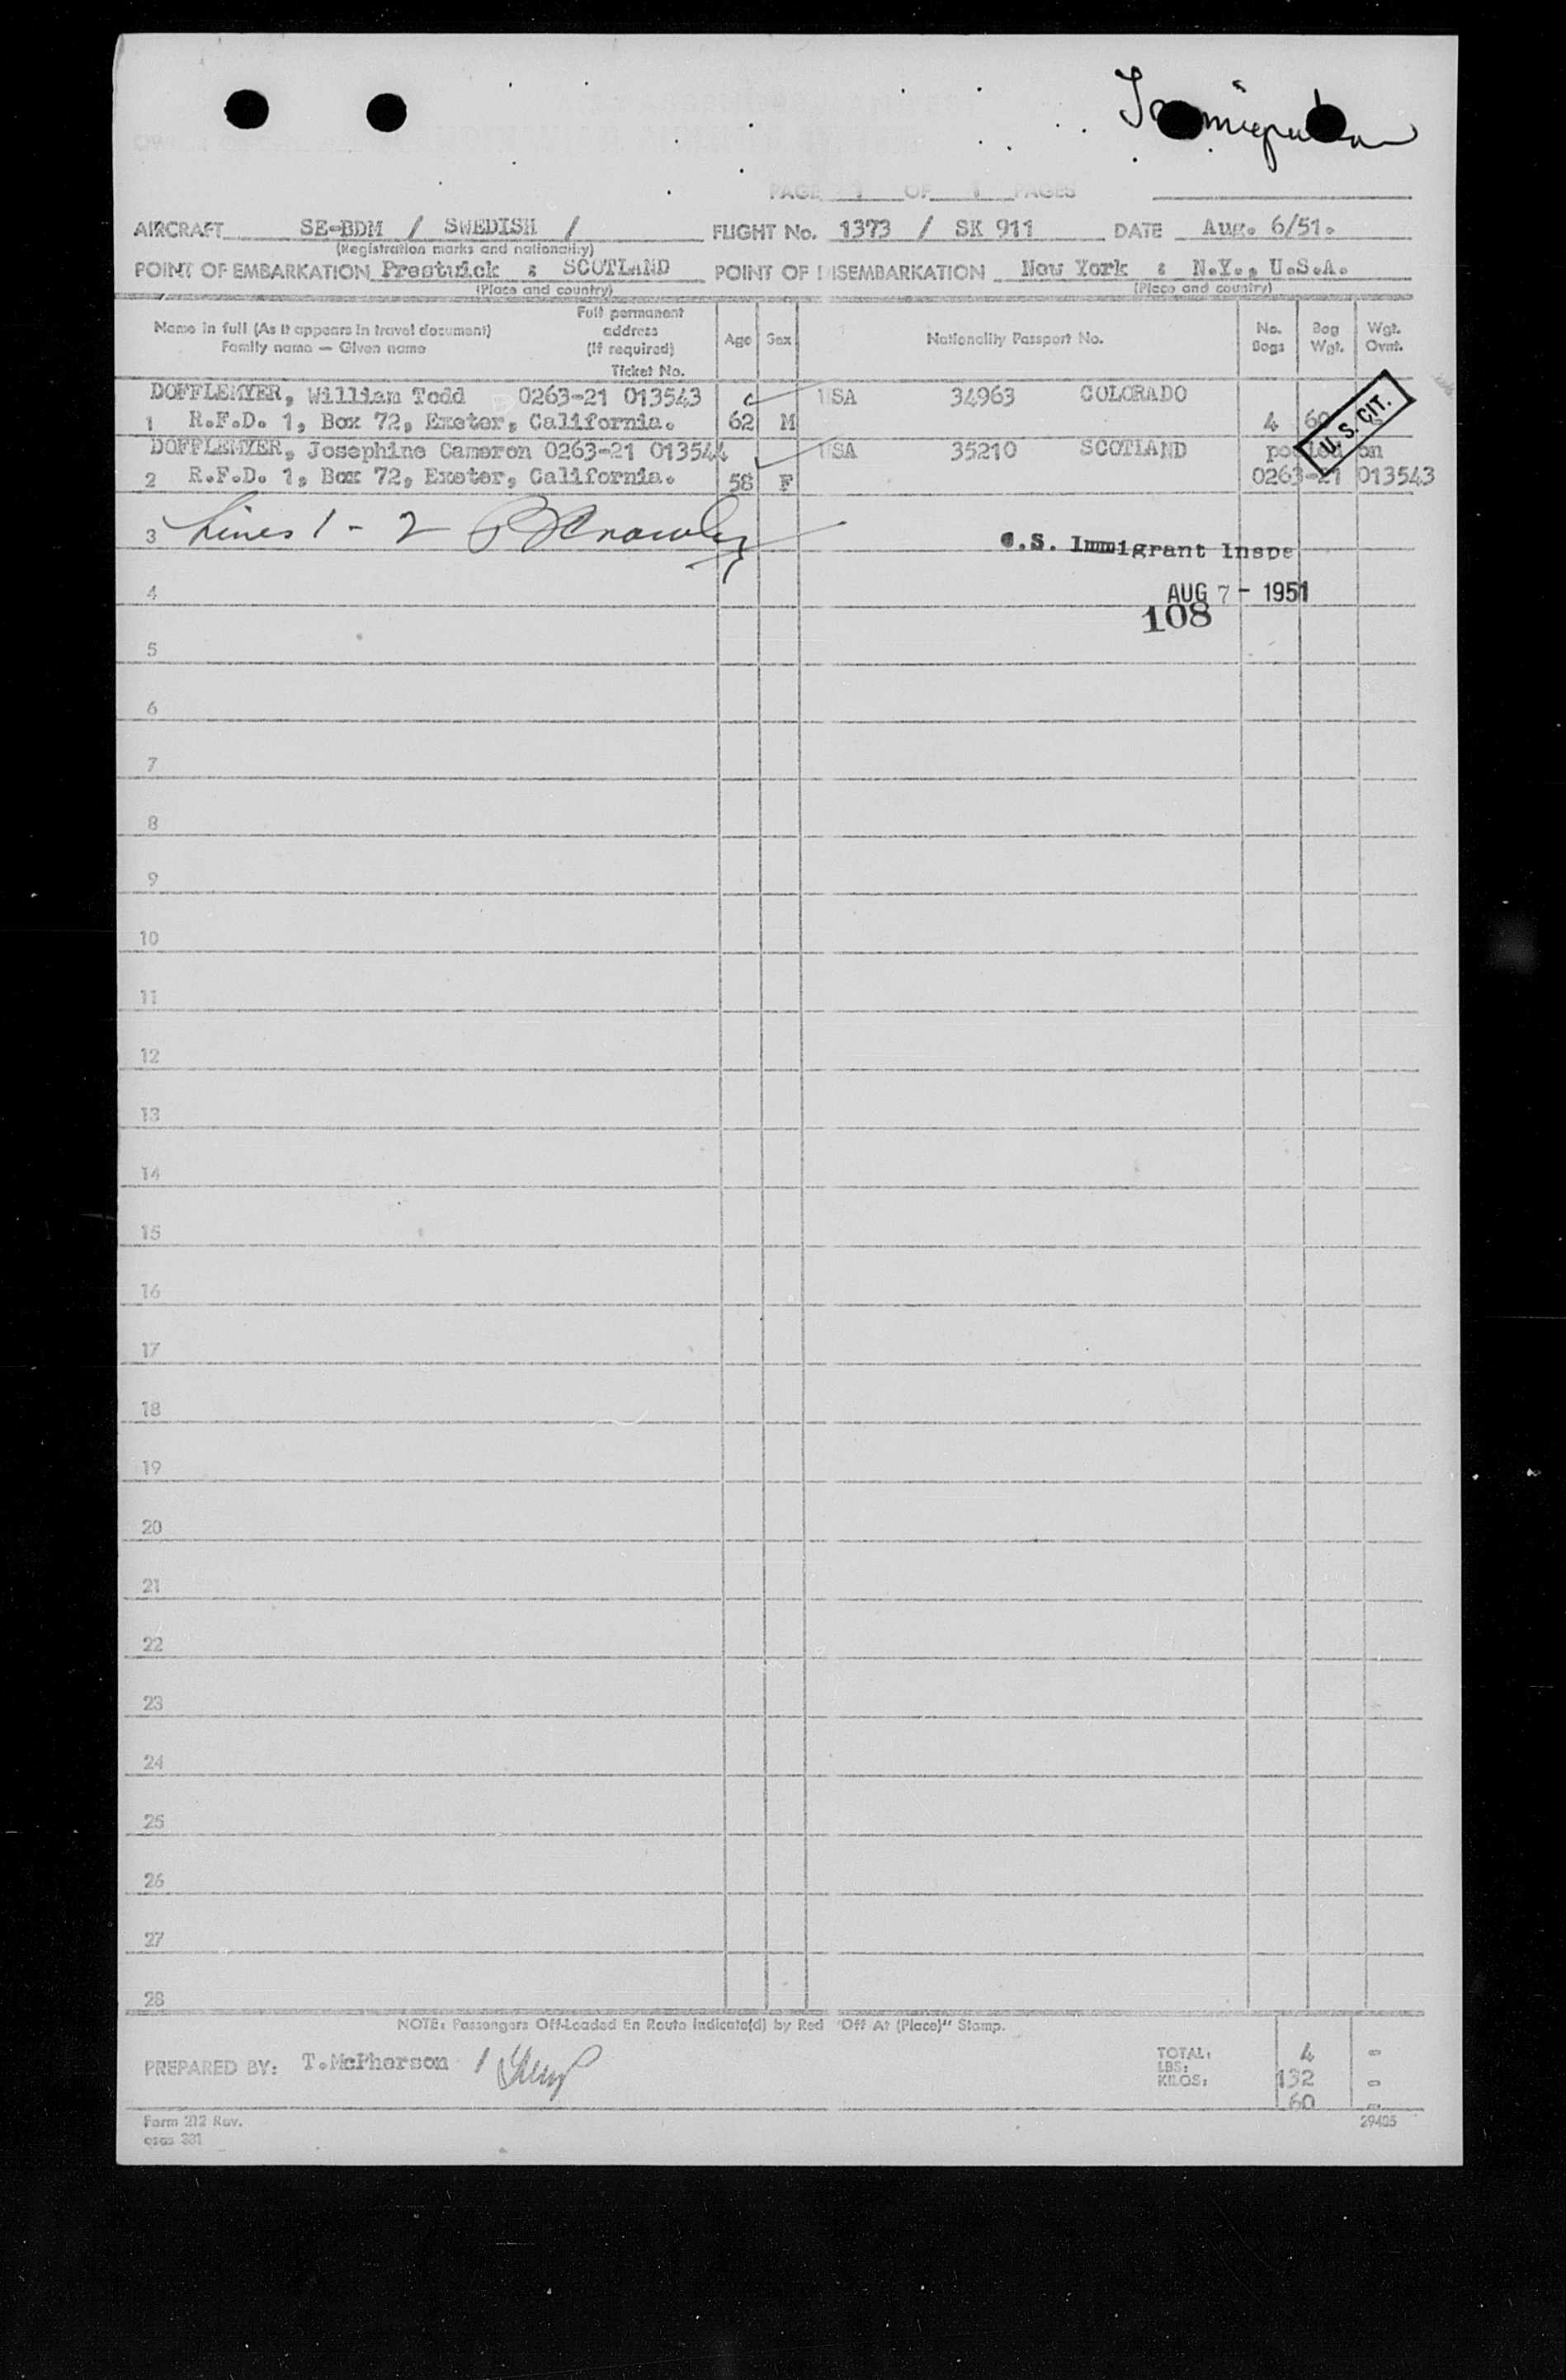 Immigration
PAGE 1 OF 1 PAGES
AIRCRAFT SE-BDM / SWEDISH / FLIGHT No. 1373 / SK 911 DATE Aug. 6/51.
(Registration marks and nationality)
POINT OF EMBARKATION Prestwick : SCOTLAND POINT OF DISEMBARKATION New York : N.Y., U.S.A.
(Place and country) (Place and country)
Name in full (As it appears in travel document) Family name — Given name Full permanent address (If required) Ticket No. Age Sex Nationality Passport No. No. Bags Bag Wgt. Wgt. Ovnt.
DOFFLEMYER, William Todd 0263-21 013543 USA 34963 COLORADO
1 R.F.D. 1, Box 72, Exeter, California. 62 M 4 60
U. S. CIT.
DOFFLEMYER, Josephine Cameron 0263-21 013544 USA 35210 SCOTLAND pooled on
2 R.F.D. 1, Box 72, Exeter, California. 58 F 0263-21 013543
3 Lines 1 - 2
U.S. Immigrant Inspe
4 AUG 7 - 1951
108
5
6
7
8
9
10
11
12
13
14
15
16
17
18
19
20
21
22
23
24
25
26
27
28
NOTE: Passengers Off-Loaded En Route indicate(d) by Red "Off At (Place)" Stamp.
PREPARED BY: T.McPherson /
TOTAL: 4 -
LBS: 132 -
KILOS: 60 -
Form 212 Rev. 29405
osas 331